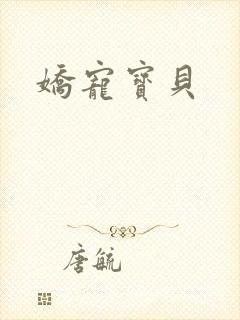 嬌寵寶貝
唐毓